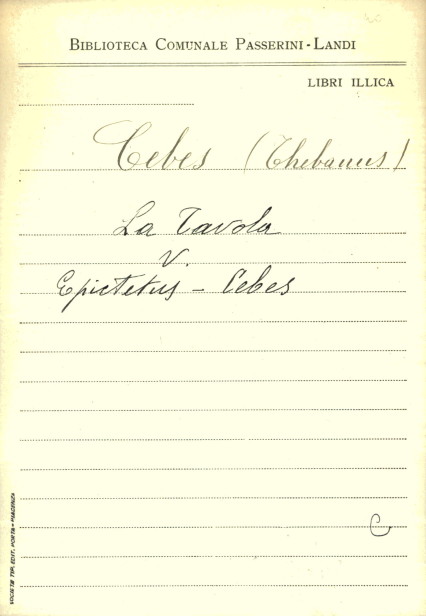 BIBLIOTECA COMUNALE PASSERINI-LANDI
LIBRI ILLICA
Cebes (Thebanus)
La Tavola
V.
Epictetus - Cebes
C
SOCIETÀ TIP. EDIT. PORTA - PIACENZA